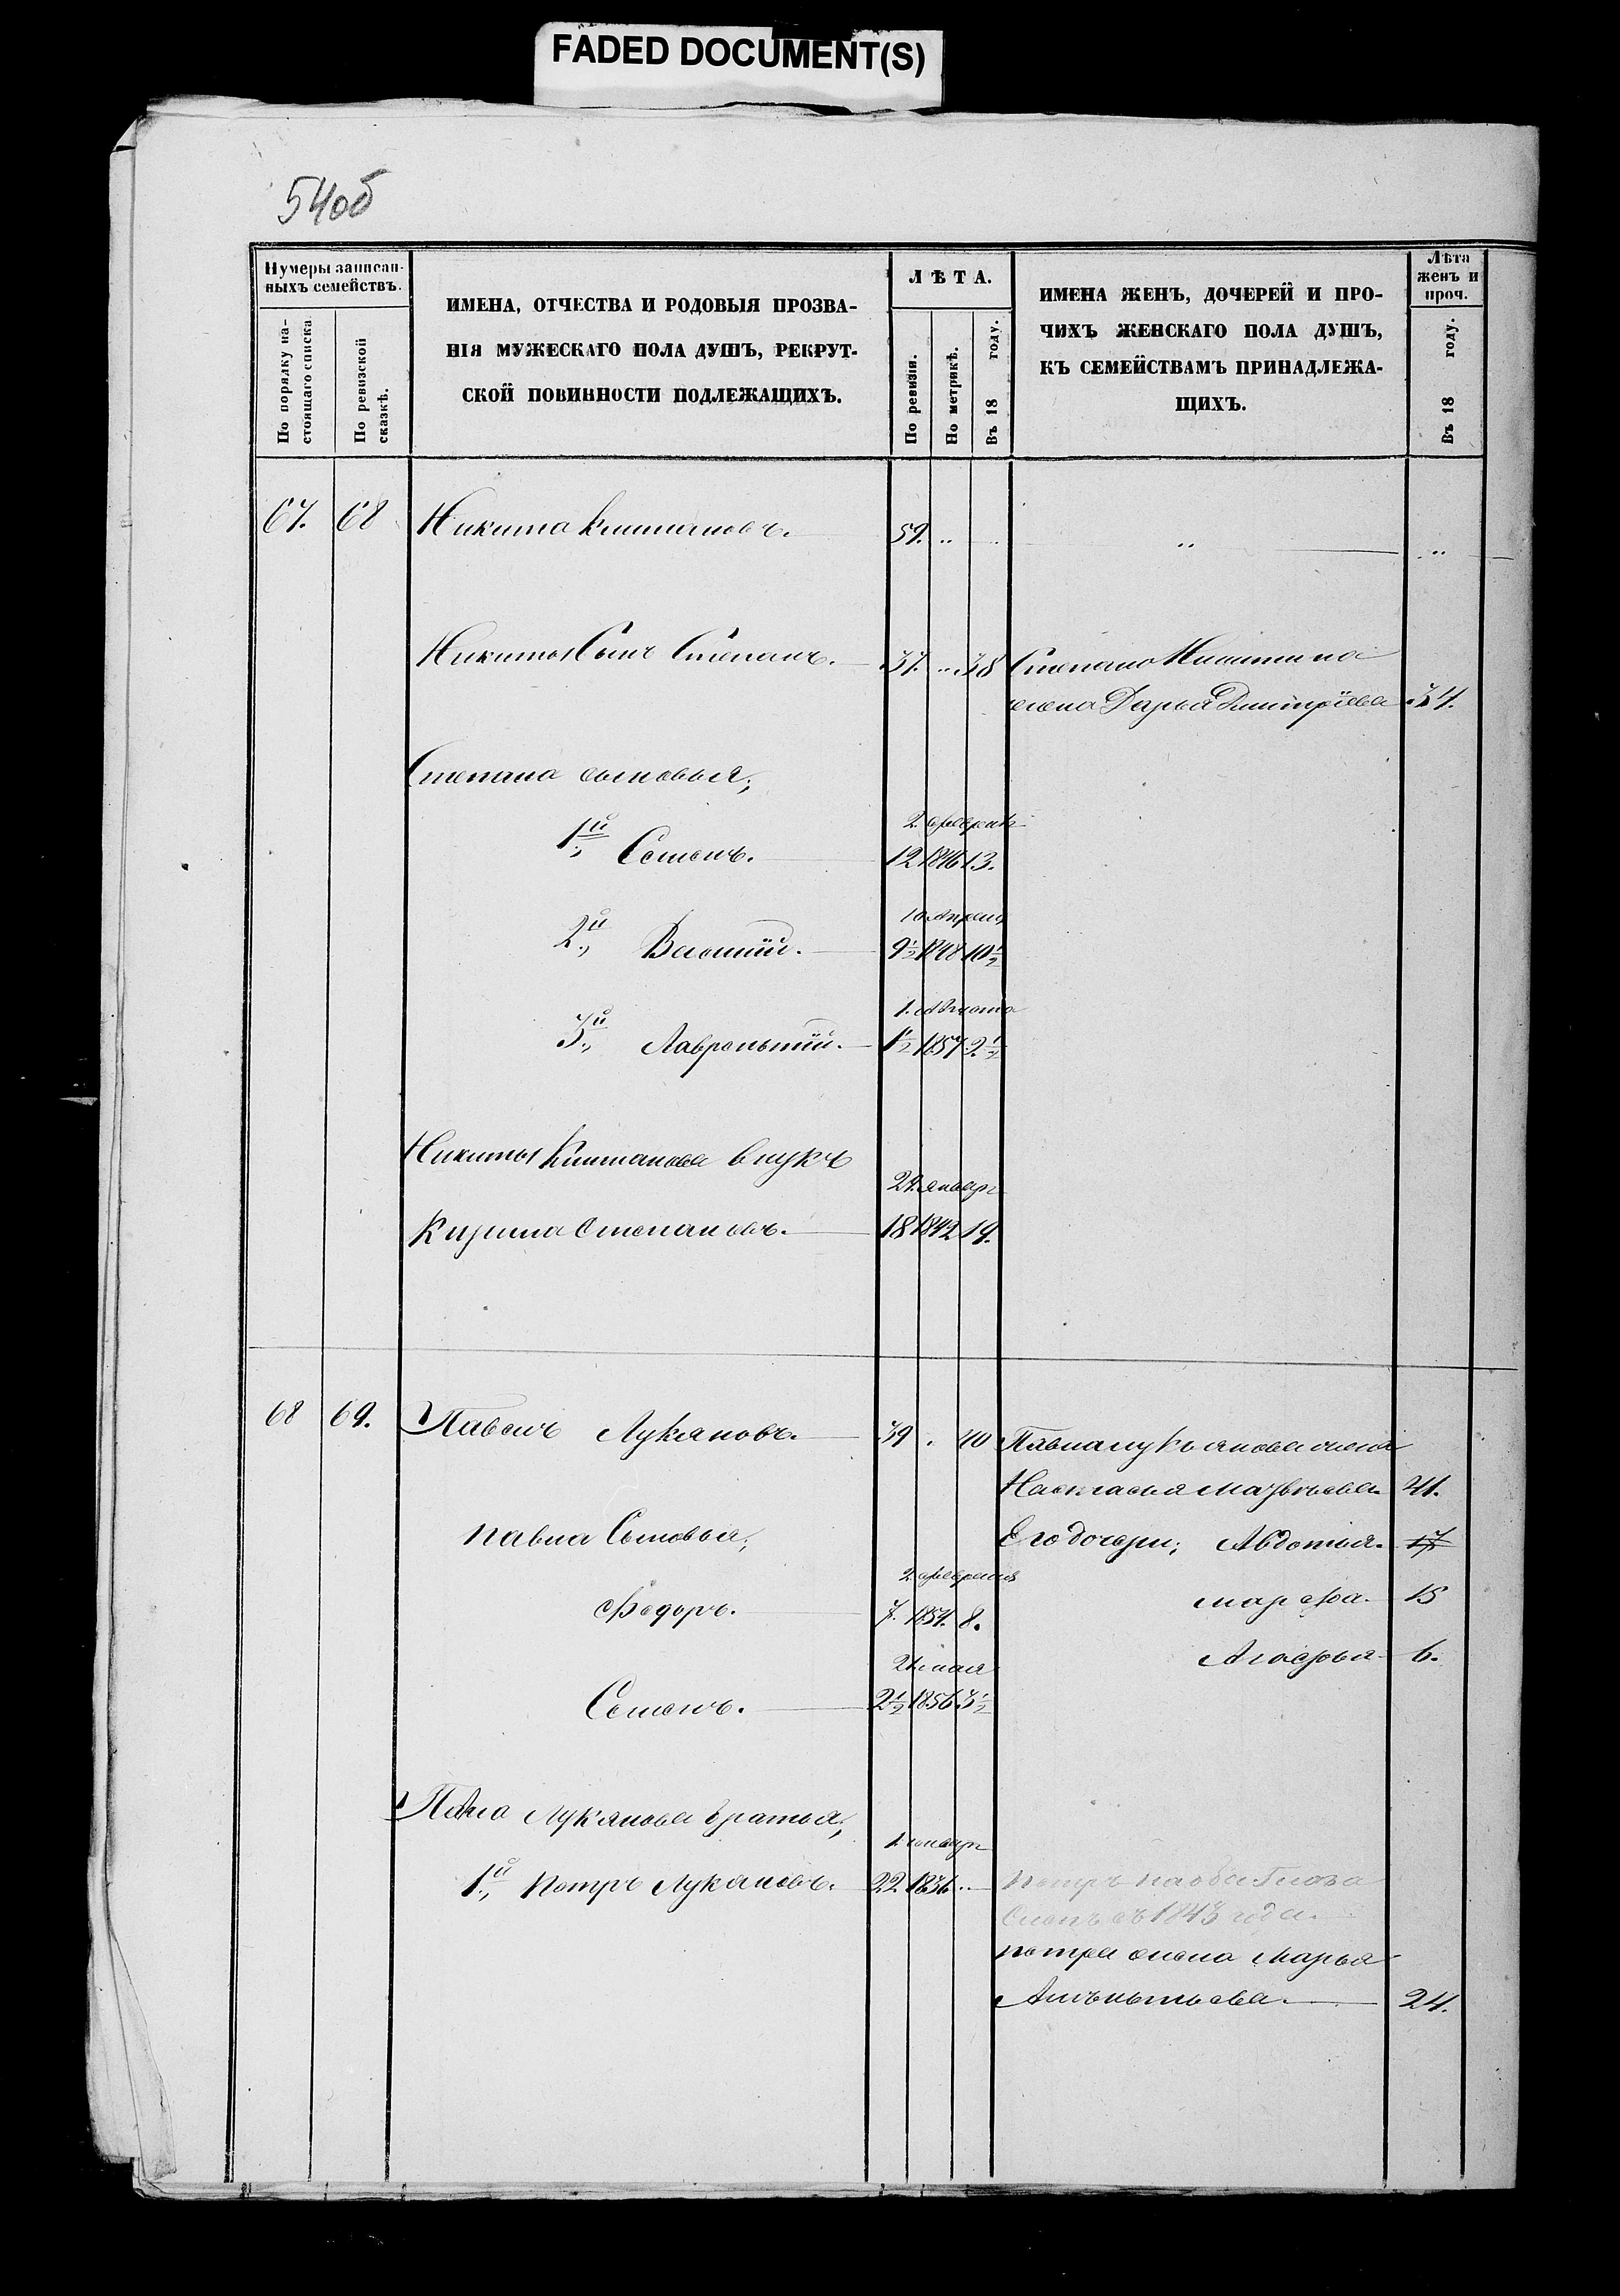 FADED DOCUMENT(S)
54об
Нумеры записан-
ныхъ семействъ.
По порядку на-
стоящаго списка
По ревизской
сказкѣ.
ИМЕНА, ОТЧЕСТВА И РОДОВЫЯ ПРОЗВА-
НІЯ МУЖЕСКАГО ПОЛА ДУШЪ, РЕКРУТ-
СКОЙ ПОВИННОСТИ ПОДЛЕЖАЩИХЪ.
ЛѢТА.
По ревизіи.
По метрикѣ.
Въ 18 году.
ИМЕНА ЖЕНЪ, ДОЧЕРЕЙ И ПРО-
ЧИХЪ ЖЕНСКАГО ПОЛА ДУШЪ,
КЪ СЕМЕЙСТВАМЪ ПРИНАДЛЕЖА-
ЩИХЪ.
Лѣта
женъ и
проч.
Въ 18 году.
67. 68 Никита 59. „ „ „
Никиты Сынъ Степанъ. 37. „ 38 Степана Никитина
жена Дарья Дмитріева 34.
Степана сыновья;
2 февраля
1й Семенъ. 12 1846 13.
10 Апреля
2й Василій. 9½ 1848 10½
1. Августа
3й Лаврентій. 1½ 1857 2½
Никиты внукъ
24. январ
Кирила Степановъ. 18 1842 19.
68 69. Павелъ Лукяновъ. 39 . 40 Павла лукьянова жена
Настасья Матвѣева 41.
Павла Сыновья; Его дочери; Авдотья. 17
2. февраля
Федоръ. 7. 1851. 8. марфа. 15
21. мая Агафья 6.
Семенъ. 2½ 1856 3½
Павла Лукянова братья;
1. январ
1й Петръ Лукяновъ. 22 1836 „ Петръ на оба глаза
Слепъ съ 1843 года.
Петра жена Марья
24.